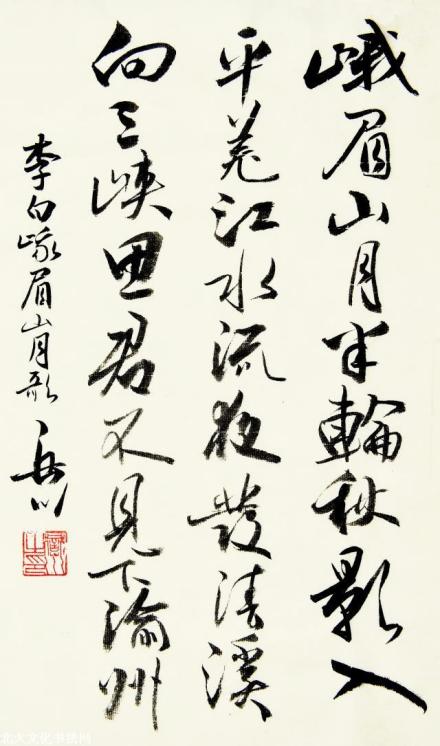 峨眉山月半輪秋影入
平羌江水流夜發清溪
向三峽思君不見下渝州
李白峨眉山月歌 岳川
北大文化书法网